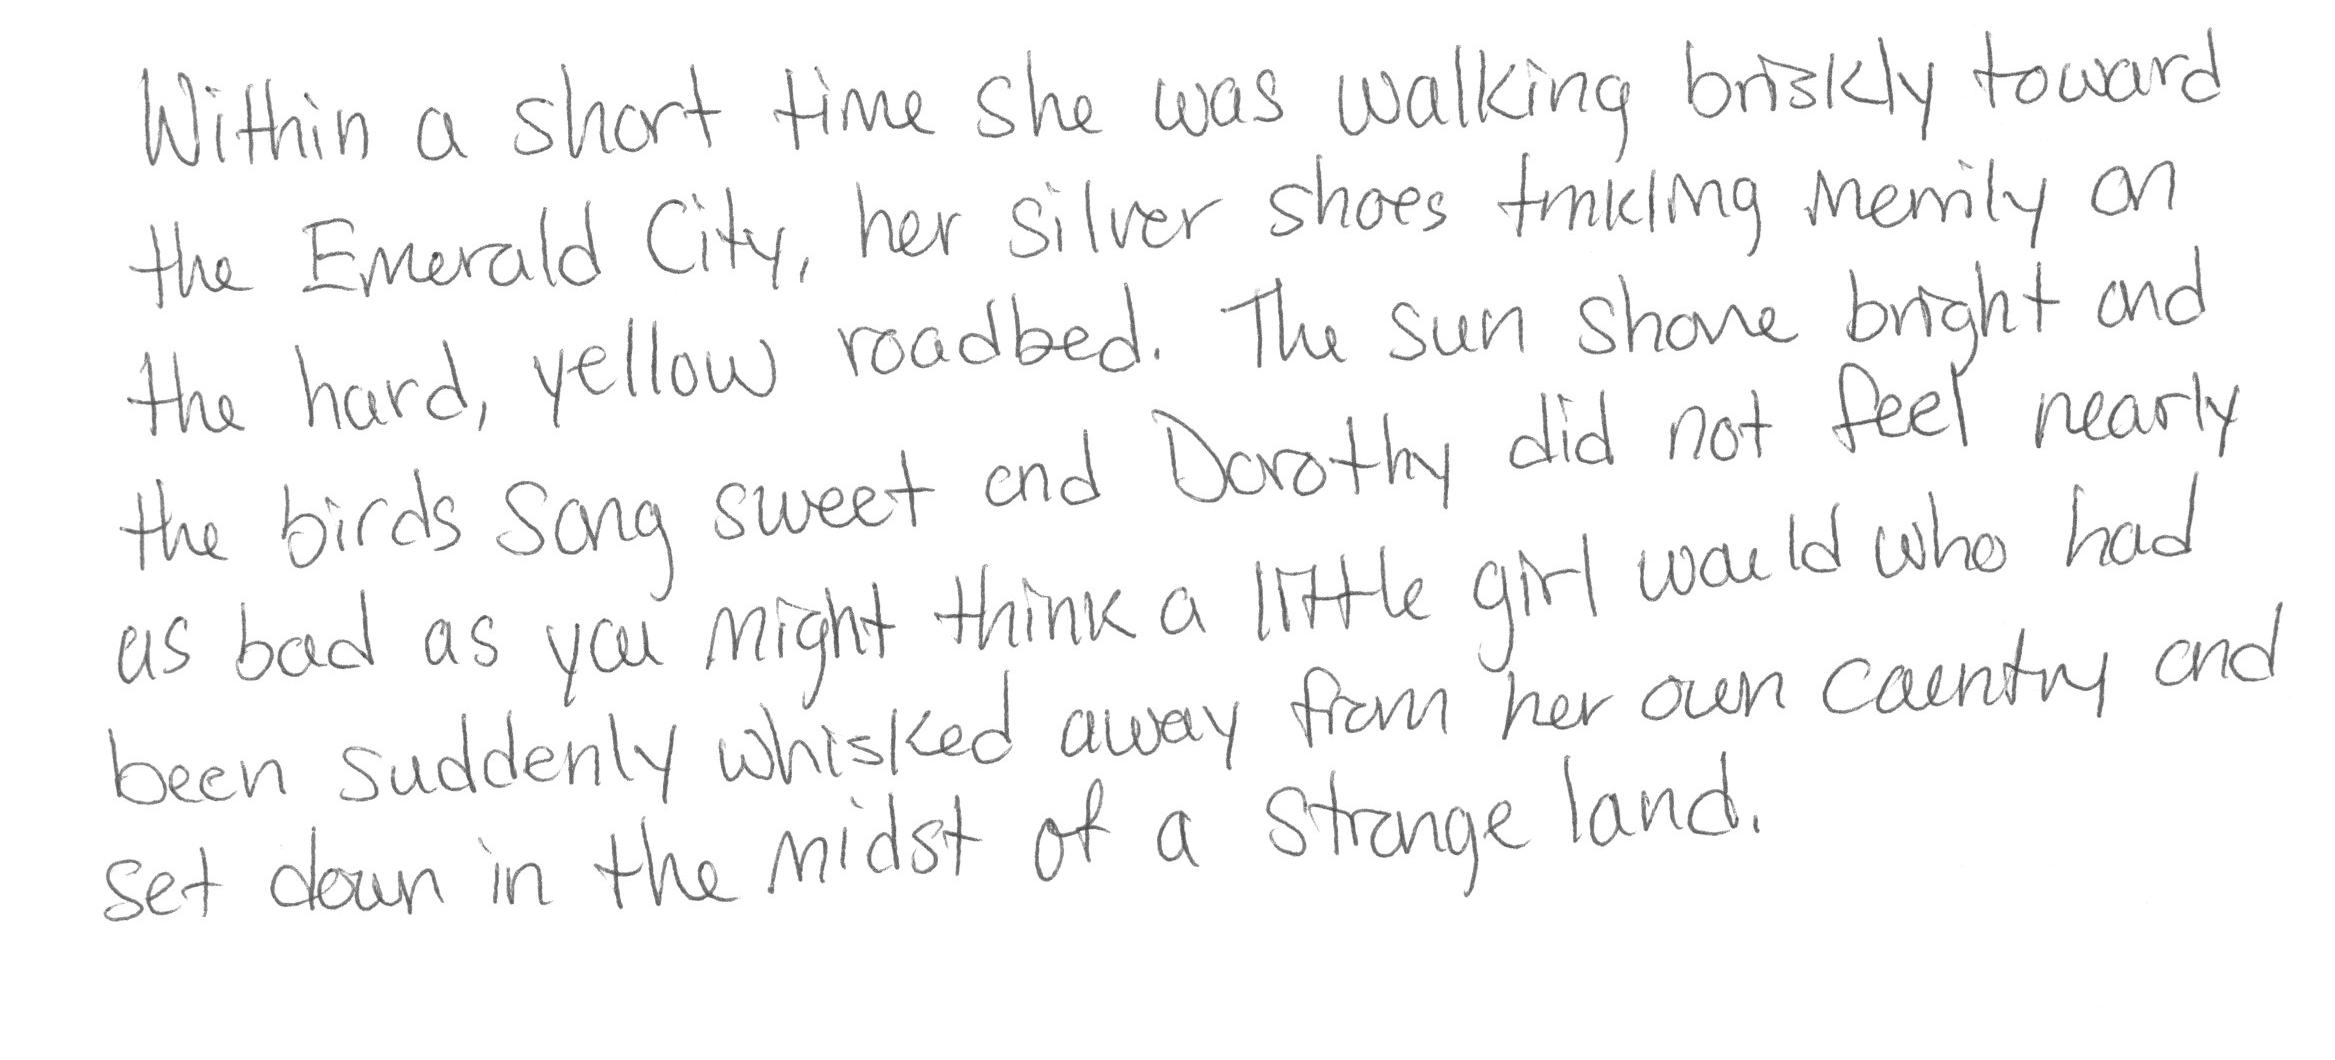 Within a short time she was walking briskly toward
the Emerald City, her silver shoes tinkling merrily on
the hard, yellow roadbed. The sun shone bright and
the birds sang sweet and Dorothy did not feel nearly
as bad as you might think a little girl would who had
been suddenly whisked away from her own country and
set down in the midst of a strange land.